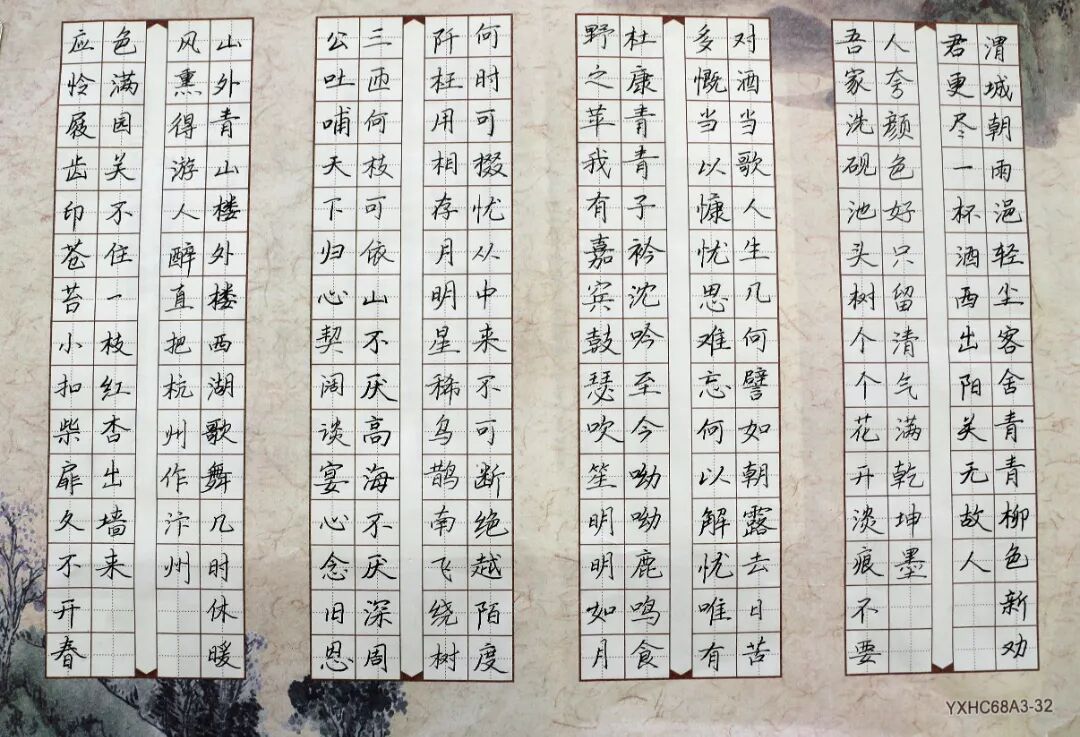 渭城朝雨浥轻尘客舍青青柳色新劝
君更尽一杯酒西出阳关无故人
吾家洗砚池头树个个花开淡痕不要
人夸颜色好只留清气满乾坤墨
对酒当歌人生几何譬如朝露去日苦
多慨当以慷忧思难忘何以解忧唯有
杜康青青子衿沈吟至今呦呦鹿鸣食
野之苹我有嘉宾鼓瑟吹笙明明如月
何时可掇忧从中来不可断绝越陌度
阡枉用相存月明星稀鸟鹊南飞绕树
三匝何枝可依山不厌高海不厌深周
公吐哺天下归心契阔谈宴心念旧恩
山外青山楼外楼西湖歌舞几时休暖
风熏得游人醉直把杭州作汴州
应怜屐齿印苍苔小扣柴扉久不开春
色满园关不住一枝红杏出墙来
YXHC68A3-32